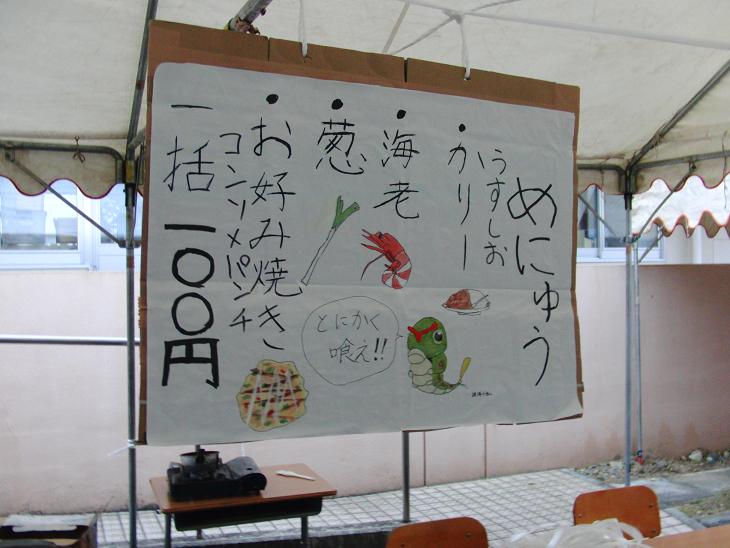 めにゅう
・かりー
うすしお
・海老
・葱
・お好み焼き
コンソメパンチ
一括 一〇〇円
とにかく
喰え!!